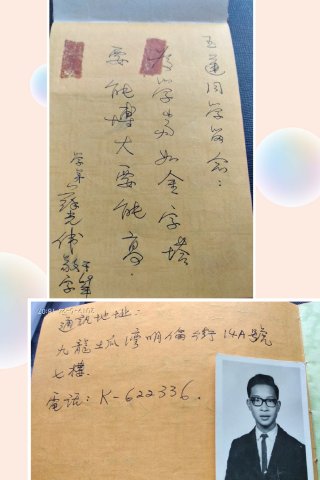 五通同學留念:
為學當如金字塔
要能博大要能高.
學弟 薛光偉敬字
通訊地址:
九龍土瓜湾明倫街14A號
七樓.
電話: K-622336.